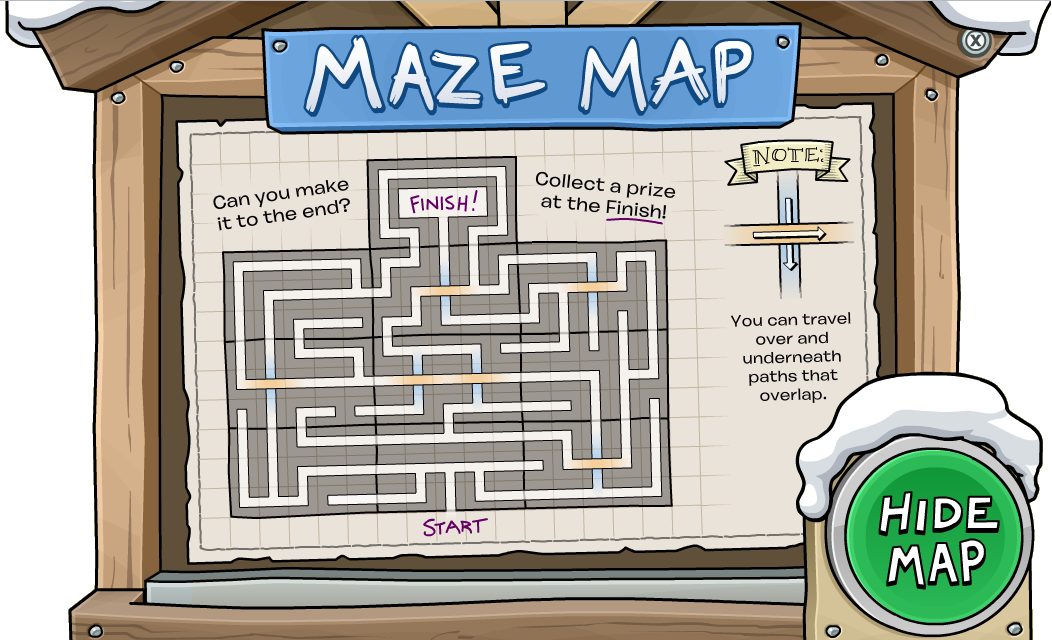 MAZE MAP
Can you make
it to the end?
FINISH!
Collect a prize
at the Finish!
NOTE:
You can travel
over and
underneath
paths that
overlap.
START
HIDE
MAP